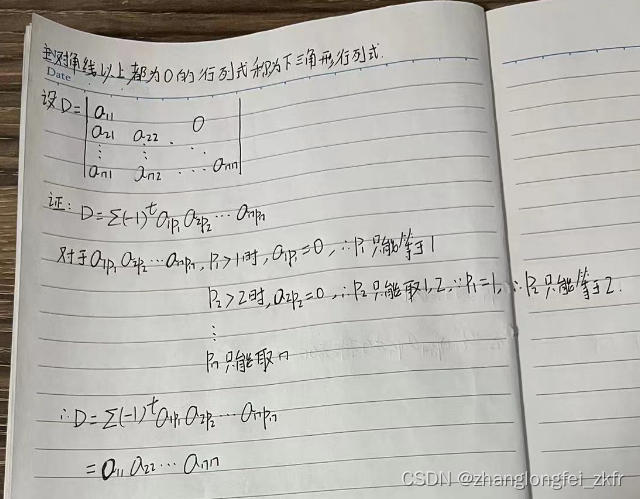 主对角线以上都为0的行列式称为下三角形行列式.
Date
设D=
a11
a21 a22 . 0
⋮ ⋮ ⋱
an1 an2 ⋯ ann
证: D=Σ(-1)^t a1p1 a2p2 ⋯ anpn
对于a1p1 a2p2⋯anpn, p1>1时, a1p1=0, ∴p1只能等于1
p2>2时, a2p2=0, ∴p2只能取1,2, ∵p1=1, ∴p2只能等于2.
⋮
pn只能取n
∴D=Σ(-1)^t a1p1 a2p2 ⋯ anpn
=a11 a22 ⋯ ann
CSDN @zhanglongfei_zkfr